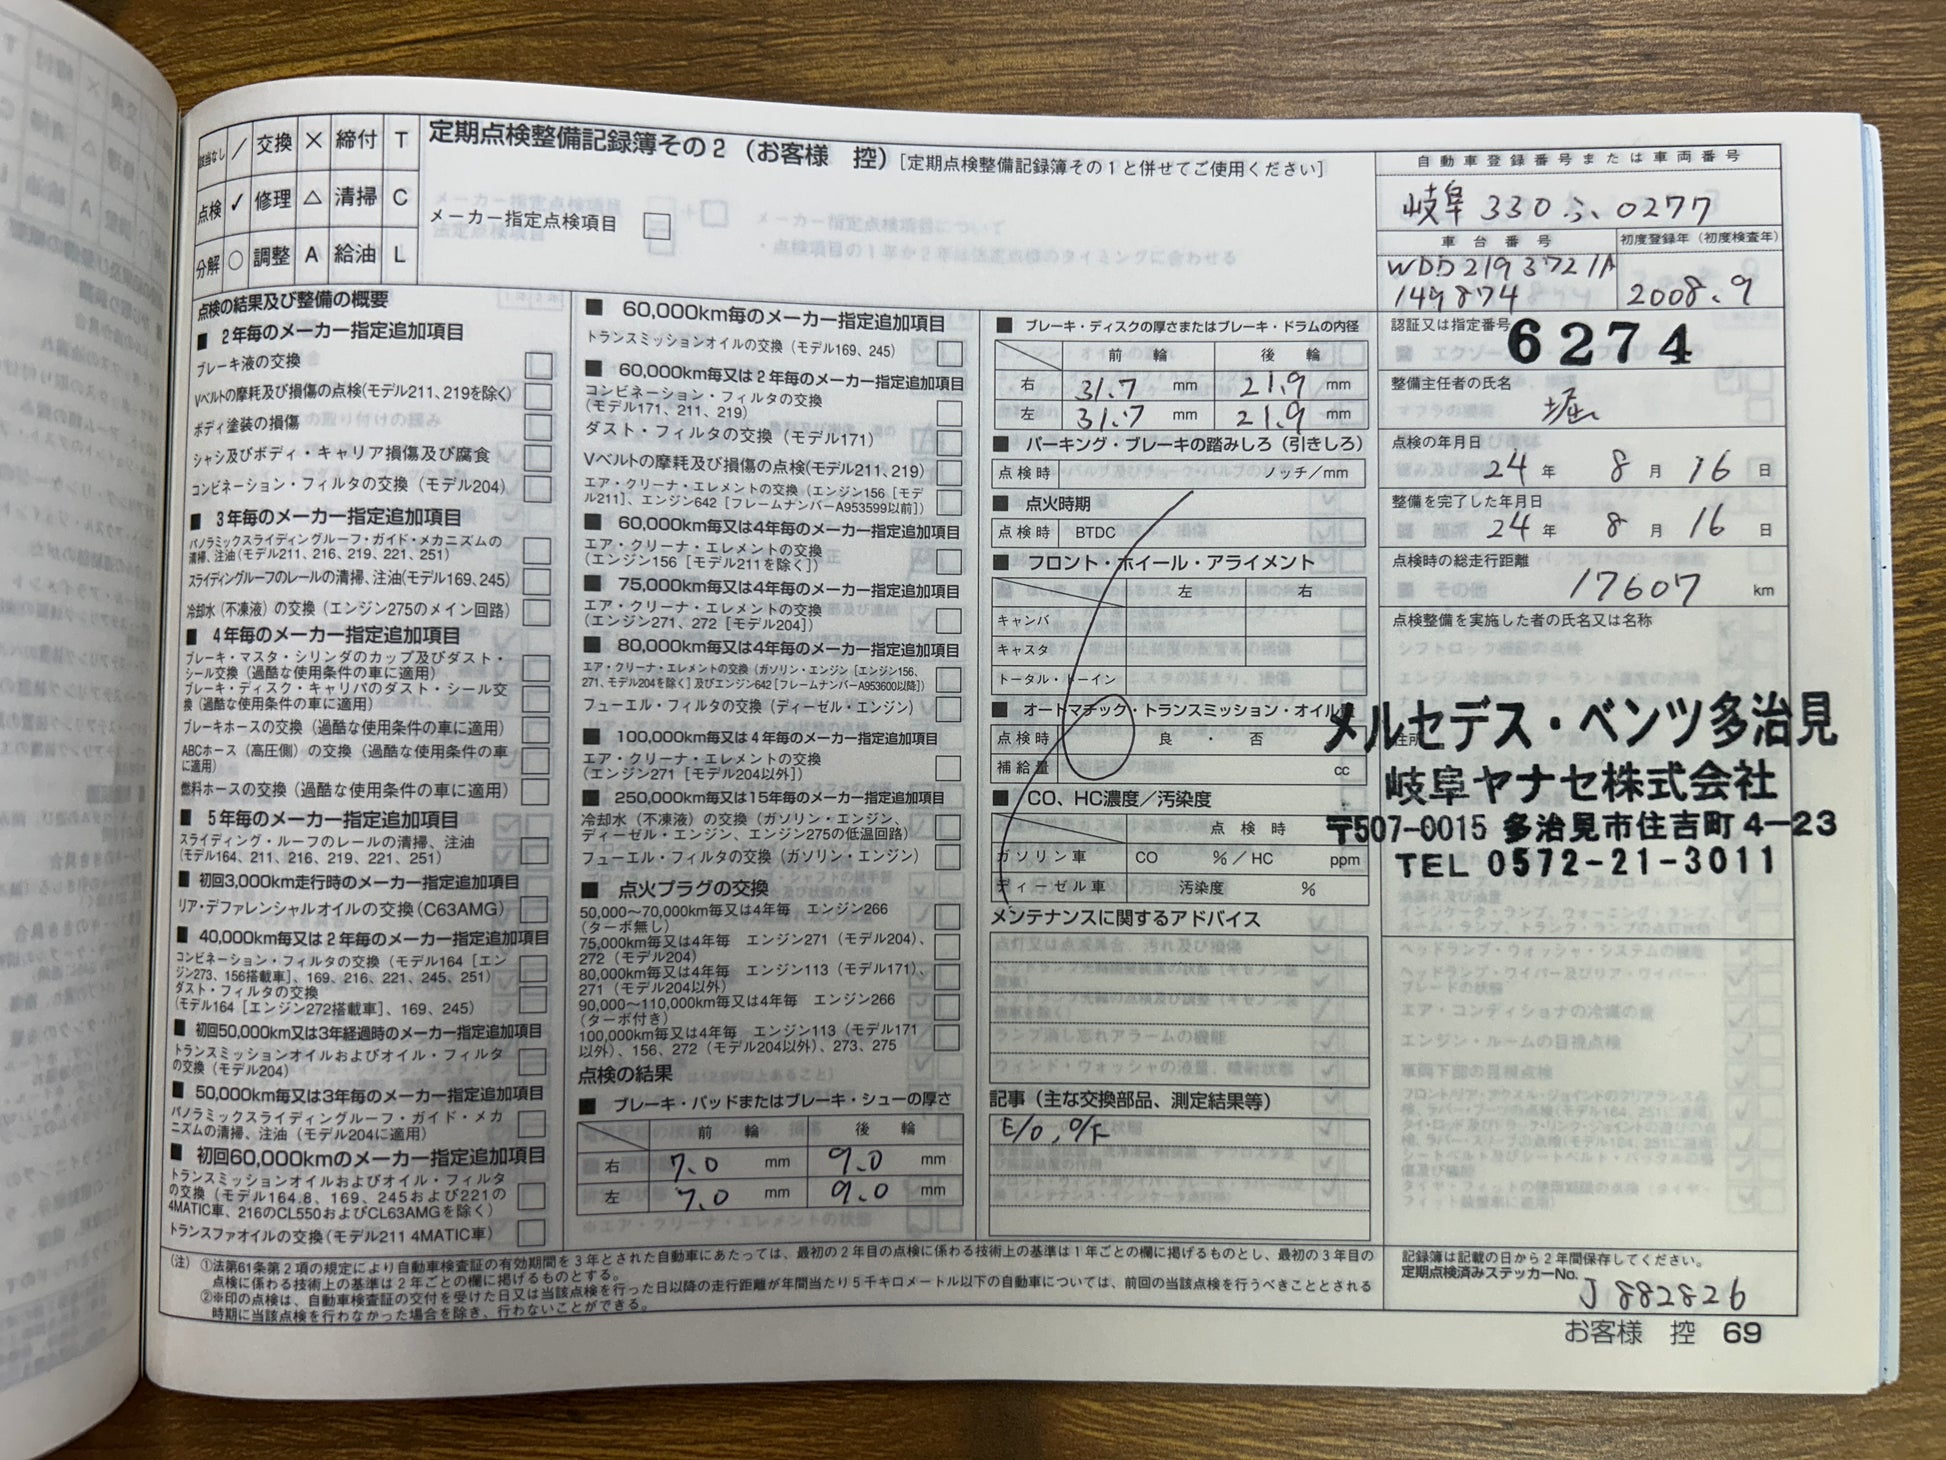 該当なし ／ 交換 ✕ 締付 T
点検 ✓ 修理 △ 清掃 C
分解 ○ 調整 A 給油 L
定期点検整備記録簿その2（お客様　控）［定期点検整備記録簿その1と併せてご使用ください］
メーカー指定点検項目 □
点検の結果及び整備の概要
■ 2年毎のメーカー指定追加項目
ブレーキ液の交換
Vベルトの摩耗及び損傷の点検(モデル211、219を除く)
ボディ塗装の損傷
シャシ及びボディ・キャリア損傷及び腐食
コンビネーション・フィルタの交換（モデル204）
■ 3年毎のメーカー指定追加項目
パノラミックスライディングルーフ・ガイド・メカニズムの
清掃、注油（モデル211、216、219、221、251）
スライディングルーフのレールの清掃、注油(モデル169、245)
冷却水（不凍液）の交換（エンジン275のメイン回路）
■ 4年毎のメーカー指定追加項目
ブレーキ・マスタ・シリンダのカップ及びダスト・
シール交換（過酷な使用条件の車に適用）
ブレーキ・ディスク・キャリパのダスト・シール交
換（過酷な使用条件の車に適用）
ブレーキホースの交換（過酷な使用条件の車に適用）
ABCホース（高圧側）の交換（過酷な使用条件の車
に適用）
燃料ホースの交換（過酷な使用条件の車に適用）
■ 5年毎のメーカー指定追加項目
スライディング・ルーフのレールの清掃、注油
（モデル164、211、216、219、221、251）
■ 初回3,000km走行時のメーカー指定追加項目
リア・デファレンシャルオイルの交換（C63AMG）
■ 40,000km毎又は2年毎のメーカー指定追加項目
コンビネーション・フィルタの交換（モデル164［エン
ジン273、156搭載車］、169、216、221、245、251）
ダスト・フィルタの交換
（モデル164［エンジン272搭載車］、169、245）
■ 初回50,000km又は3年経過時のメーカー指定追加項目
トランスミッションオイルおよびオイル・フィルタ
の交換（モデル204）
■ 50,000km毎又は3年毎のメーカー指定追加項目
パノラミックスライディングルーフ・ガイド・メカ
ニズムの清掃、注油（モデル204に適用）
■ 初回60,000kmのメーカー指定追加項目
トランスミッションオイルおよびオイル・フィルタ
の交換（モデル164.8、169、245および221の
4MATIC車、216のCL550およびCL63AMGを除く）
トランスファオイルの交換（モデル211 4MATIC車）
■ 60,000km毎のメーカー指定追加項目
トランスミッションオイルの交換（モデル169、245）
■ 60,000km毎又は2年毎のメーカー指定追加項目
コンビネーション・フィルタの交換
（モデル171、211、219）
ダスト・フィルタの交換（モデル171）
Vベルトの摩耗及び損傷の点検(モデル211、219)
エア・クリーナ・エレメントの交換（エンジン156［モデ
ル211］、エンジン642［フレームナンバーA953599以前］）
■ 60,000km毎又は4年毎のメーカー指定追加項目
エア・クリーナ・エレメントの交換
（エンジン156［モデル211を除く］）
■ 75,000km毎又は4年毎のメーカー指定追加項目
エア・クリーナ・エレメントの交換
（エンジン271、272［モデル204］）
■ 80,000km毎又は4年毎のメーカー指定追加項目
エア・クリーナ・エレメントの交換（ガソリン・エンジン［エンジン156、
271、モデル204を除く］及びエンジン642［フレームナンバーA953600以降］）
フューエル・フィルタの交換（ディーゼル・エンジン）
■ 100,000km毎又は4年毎のメーカー指定追加項目
エア・クリーナ・エレメントの交換
（エンジン271［モデル204以外］）
■ 250,000km毎又は15年毎のメーカー指定追加項目
冷却水（不凍液）の交換（ガソリン・エンジン、
ディーゼル・エンジン、エンジン275の低温回路）
フューエル・フィルタの交換（ガソリン・エンジン）
■ 点火プラグの交換
50,000～70,000km毎又は4年毎　エンジン266
（ターボ無し）
75,000km毎又は4年毎　エンジン271（モデル204）、
272（モデル204）
80,000km毎又は4年毎　エンジン113（モデル171）、
271（モデル204以外）
90,000～110,000km毎又は4年毎　エンジン266
（ターボ付き）
100,000km毎又は4年毎　エンジン113（モデル171
以外）、156、272（モデル204以外）、273、275
点検の結果
■ ブレーキ・パッドまたはブレーキ・シューの厚さ
前　輪　後　輪
右 7.0 mm 9.0 mm
左 7.0 mm 9.0 mm
■ ブレーキ・ディスクの厚さまたはブレーキ・ドラムの内径
前　輪　後　輪
右 31.7 mm 21.9 mm
左 31.7 mm 21.9 mm
■ パーキング・ブレーキの踏みしろ（引きしろ）
点検時 ノッチ/mm
■ 点火時期
点検時 BTDC
■ フロント・ホイール・アライメント
左　右
キャンバ
キャスタ
トータル・トーイン
■ オートマチック・トランスミッション・オイル量
点検時 良 ・ 否
補給量 cc
■ CO、HC濃度／汚染度
点検時
ガソリン車 CO %／HC ppm
ディーゼル車 汚染度 %
メンテナンスに関するアドバイス
記事（主な交換部品、測定結果等）
E/O, O/F
自動車登録番号または車両番号
岐阜 330 ふ 0277
車台番号 初度登録年（初度検査年）
WDD2193721A
149874 2008.9
認証又は指定番号 6274
整備主任者の氏名
堀
点検の年月日
24 年 8 月 16 日
整備を完了した年月日
24 年 8 月 16 日
点検時の総走行距離
17607 km
点検整備を実施した者の氏名又は名称
メルセデス・ベンツ多治見
住所
岐阜ヤナセ株式会社
〒507-0015 多治見市住吉町4-23
TEL 0572-21-3011
（注）①法第61条第2項の規定により自動車検査証の有効期間を3年とされた自動車にあたっては、最初の2年目の点検に係わる技術上の基準は1年ごとの欄に掲げるものとし、最初の3年目の
点検に係わる技術上の基準は2年ごとの欄に掲げるものとする。
②※印の点検は、自動車検査証の交付を受けた日又は当該点検を行った日以降の走行距離が年間当たり5千キロメートル以下の自動車については、前回の当該点検を行うべきこととされる
時期に当該点検を行わなかった場合を除き、行わないことができる。
記録簿は記載の日から2年間保存してください。
定期点検済みステッカーNo.
J 882826
お客様　控 69